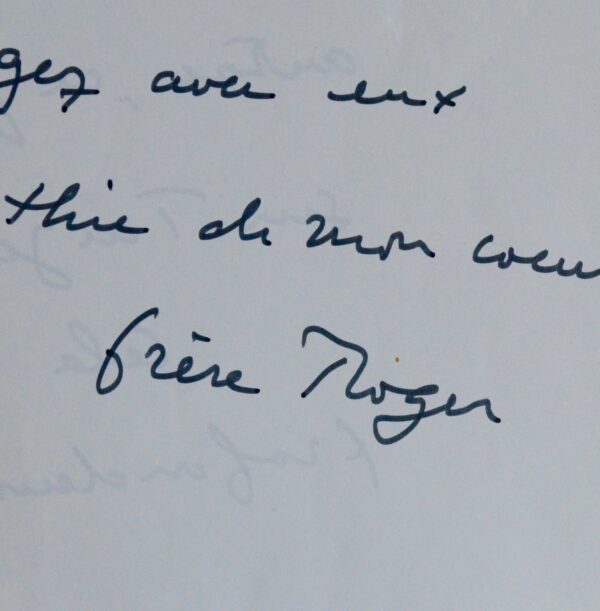 gez avec eux
thie de mon coeu
frère Roger